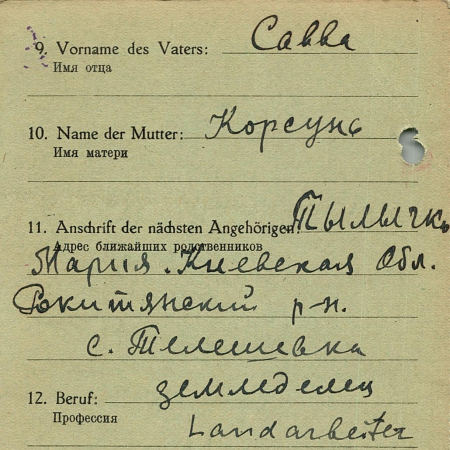 9. Vorname des Vaters: Савва
Имя отца
10. Name der Mutter: Корсунь
Имя матери
11. Anschrift der nächsten Angehörigen:
Адрес ближайших родственников
Мария. Киевская Обл.
Рокитянский р-н.
с. Телешевка
12. Beruf: земледелец
Профессия Landarbeiter